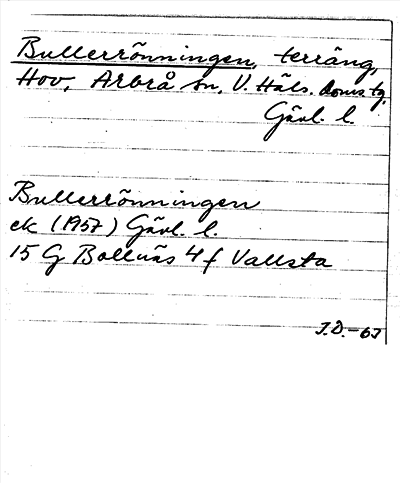 Bullerrönningen, terräng,
Hov, Arbrå sn, V. Häls. doms.tg.
Gävl. l.
Bullerrönningen
ek (1957) Gävl. l.
15 G Bollnäs 4 f Vallsta
J.D.-63